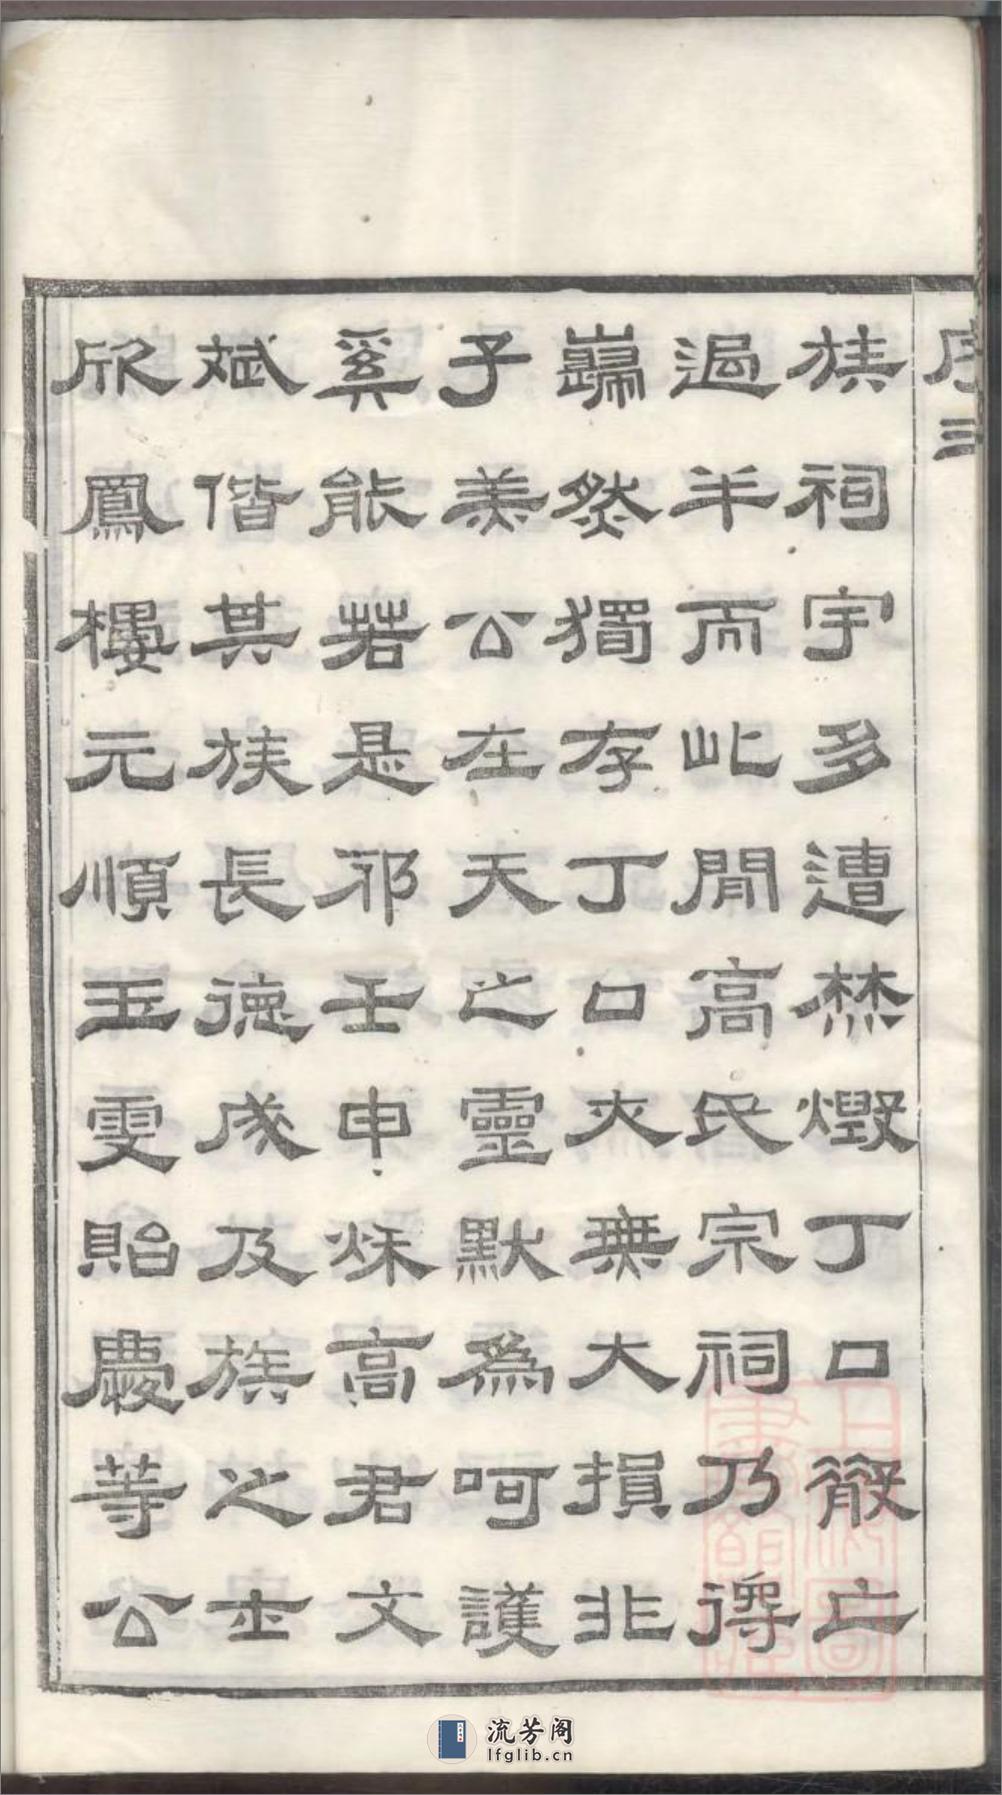 序 三
族祠宇多遭焚燬丁口散亡
過半而此間高氏宗祠乃得
巋然獨存丁口亦無大損非
子羔公在天之靈默為呵護
奚能若是邪壬申秋高君文
斌偕其族長德成及族之士
欣鳳樓元順玉雯貽慶等公
流芳阁
lfglib.cn